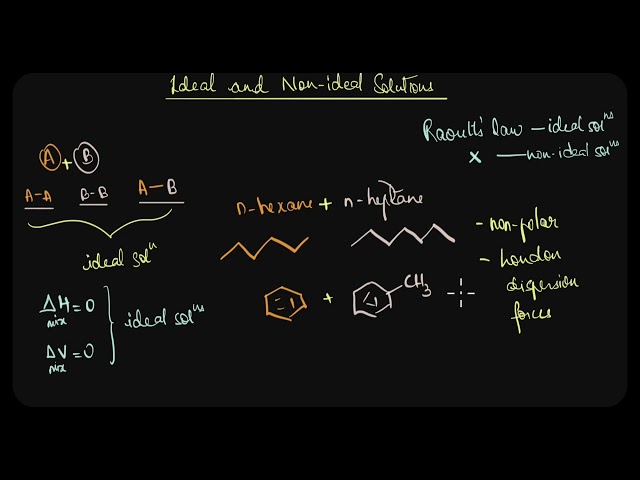 Ideal and Non-ideal Solutions
Raoult's law — ideal solⁿˢ
x — non-ideal solⁿˢ
A + B
A-A B-B A-B
ideal solⁿ
n-hexane + n-heptane
+ CH3
- non-polar
- London
dispersion
forces
ΔH = 0
mix
ideal solⁿˢ
ΔV = 0
mix